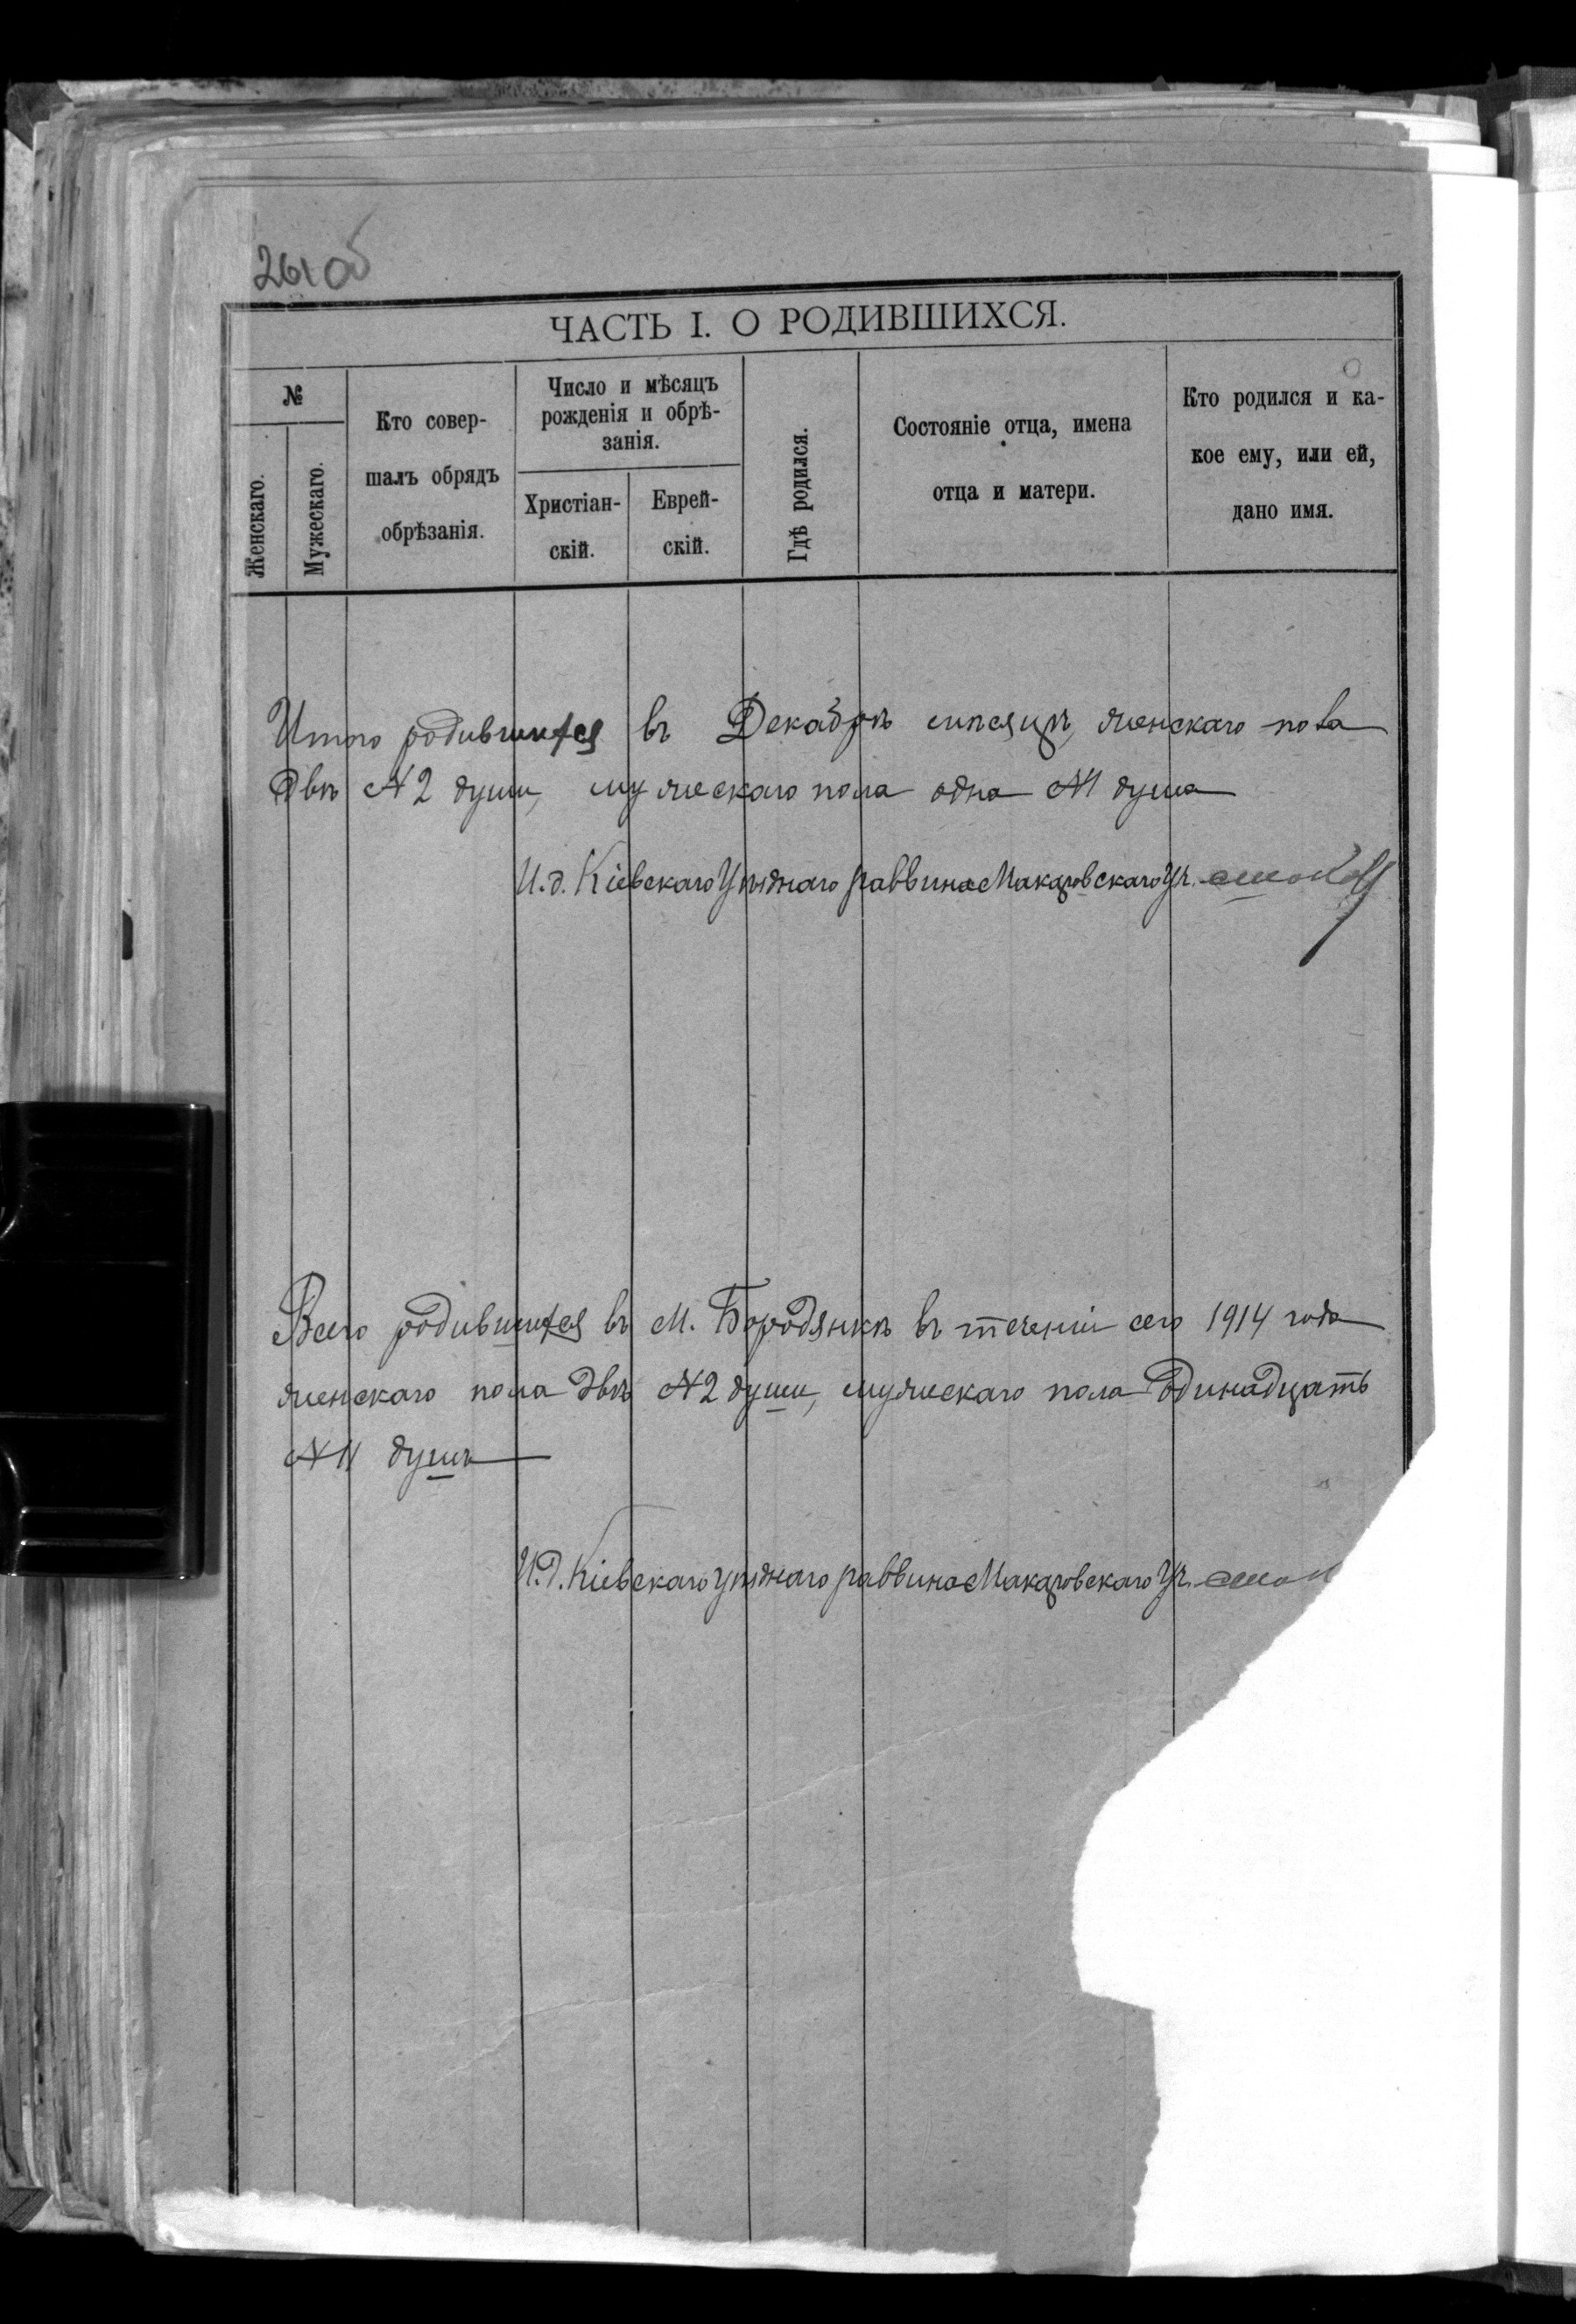 261об
ЧАСТЬ I. О РОДИВШИХСЯ.
№
Женскаго.
Мужескаго.
Кто совер-
шалъ обрядъ
обрѣзанія.
Число и мѣсяцъ
рожденія и обрѣ-
занія.
Христіан-
скій.
Еврей-
скій.
Гдѣ родился.
Состояніе отца, имена
отца и матери.
Кто родился и ка-
кое ему, или ей,
дано имя.
Итого родившихся въ Декабрѣ мѣсяцѣ, женскаго пола
двѣ №2 души, мужескаго пола одна №1 душа
И.д. Кіевскаго Уѣзднаго раввина Макаровскаго Уч.
Всего родившихся въ м. Бородянкѣ въ теченіи сего 1914 года
женскаго пола двѣ №2 души, мужескаго пола Одинадцать
№11 душъ
И.д. Кіевскаго уѣзднаго раввина Макаровскаго Уч.